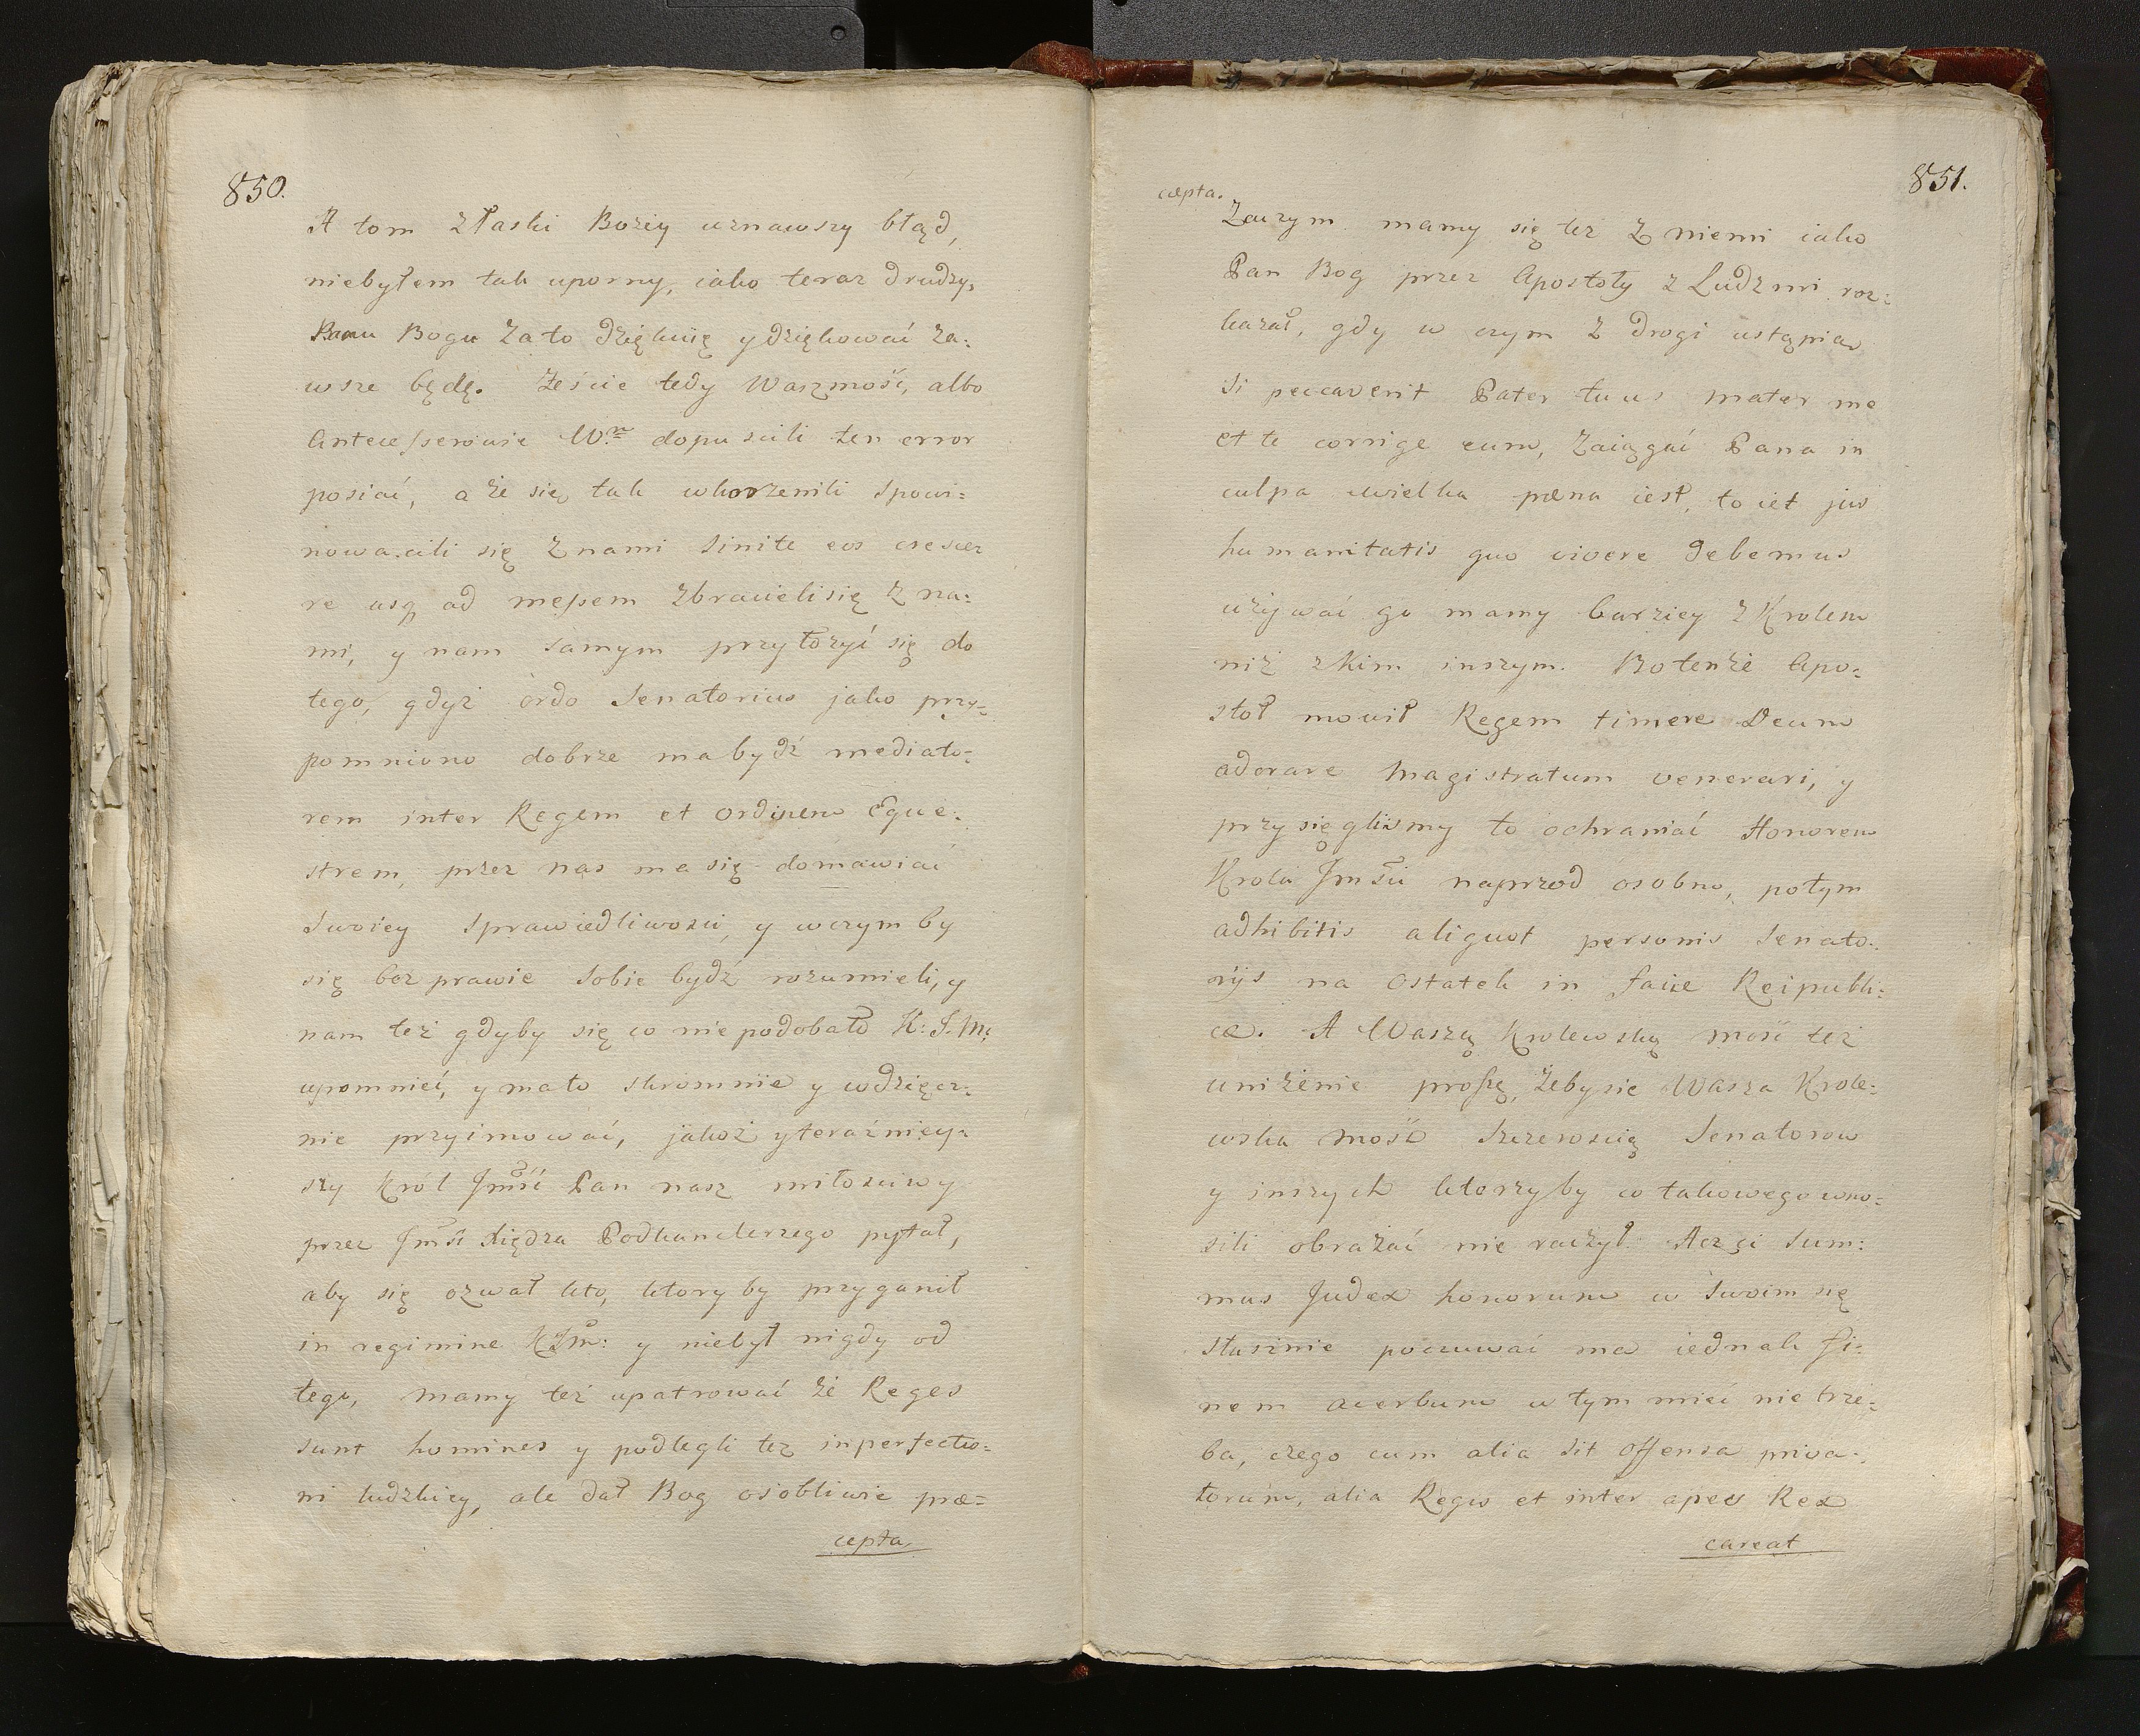 850.
A tom złaski Bożey uznawszy błąd,
niebyłem tak uporny, iako teraz drudzy,
Panu Bogu za to dziękuię y dziękować za=
wsze będę. Żeście tedy Waszmość, albo
Antecessorowie dopuścili ten error
posiać, a że się tak wkorzenili spowi=
nowacili się z nami sinite eos cresce
re usq ad messem zbracieli się z na=
mi, y nam samym przyłożyć się do
tego, gdyż ordo Senatorius jako przy=
pomniono dobrze ma bydź mediato=
rem inter Regem et ordinem Eque=
strem, przez nas ma się domawiać
Swoiey Sprawiedliwości, y wczym by
się bez prawie Sobie bydź rozumieli, y
nam też gdyby się co nie podobało K: J. M:
upomnieć, y mało skromnie y wdzięcz=
nie przyimować, jakoż y teraźniey=
szy Król Jmść Pan nasz miłościwy
przez Jmść Xiędza Podkanclerzego pytał,
aby się ozwał kto, ktory by przyganił
in regimine KJm: y niebył nigdy od
tego, mamy też upatrować że Reges
sunt homines y podlegli też inperfectio=
ni ludzkiey, ale dał Bog osobliwie præ=
cepta,
851.
cepta.
Zaczym mamy się też z niemi iako
Pan Bog przez Apostoły z Ludzmi roz=
kazał, gdy w czym z drogi ustąpia
Si peccaverit Pater tuus mater me
et te corrige eum, Zaiągać Pana in
culpa wielka pœna iest, to iet jus
humanitatis quo vivere debemus
używać go mamy barziey z Krolem
niż z kim inszym. Bo tenże Apo=
stoł mowił Regem timere Deum
adorare Magistratum venerari, y
przysięgliśmy to ochraniać Honorem
Krola Jmści naprzod osobno, potym
adhibitis aliquot personis Senato=
rijs na ostatek in facie Reipubli=
cæ. A Waszą Krolewską mość też
uniżenie proszę, żebysie Wasza Krole=
wska Mość Szczerością Senatorow
y inszych ktorzy by co takowego wno=
sili obrażać nie raczył. Acz si Sum=
mus Judex honorum w Swoim się
słusznie poczuwać ma iednak fi=
nem acerbum w tym mieć nie trze=
ba, czego cum alia sit offensa priva=
torum, alia Regis et inter apes Rex
careat